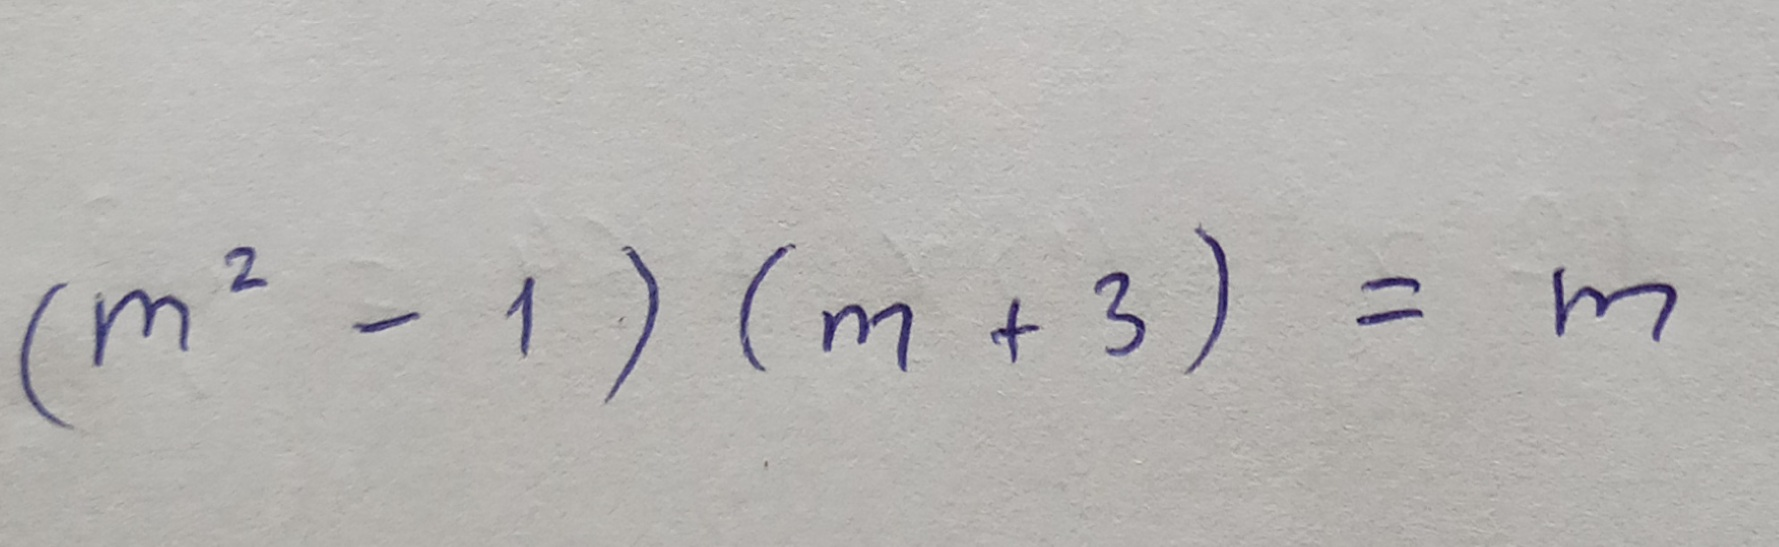 (m² - 1) (m + 3) = m